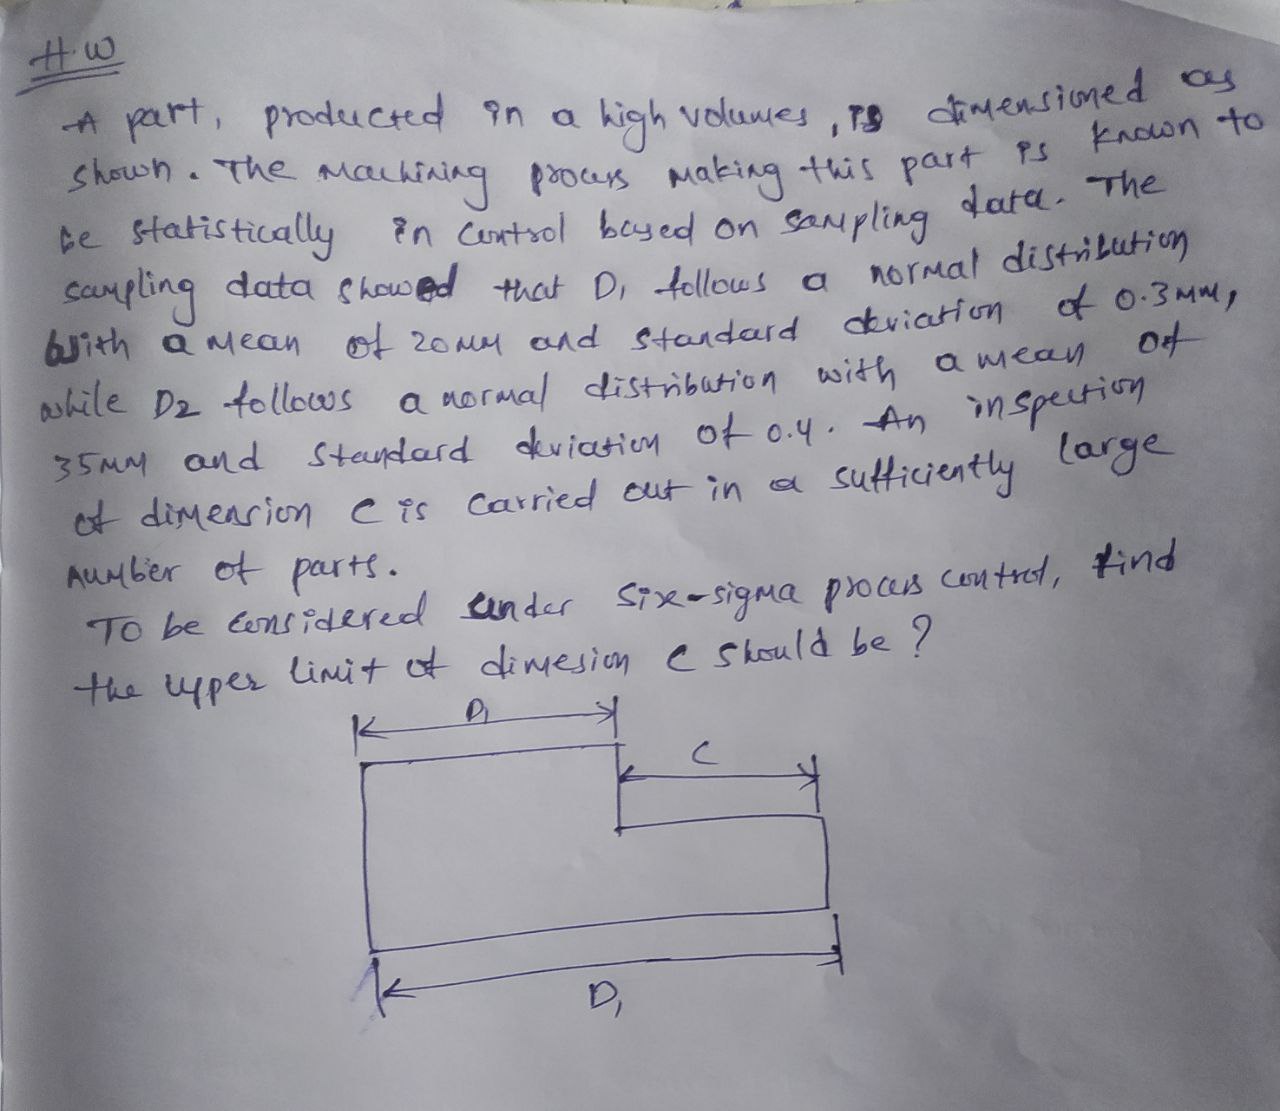 H.W
A part, producted in a high volumes, is dimensioned as
shown. The Machining process making this part is known to
be statistically in control based on sampling data. The
sampling data showed that D1 follows a normal distribution
with a mean of 20MM and standard deviation of 0.3MM,
while D2 follows a normal distribution with a mean of
35MM and standard deviation of 0.4. An inspection
of dimension C is carried out in a sufficiently large
number of parts.
To be considered under six-sigma process control, find
the upper limit of dimesion C should be?
D1
C
D1